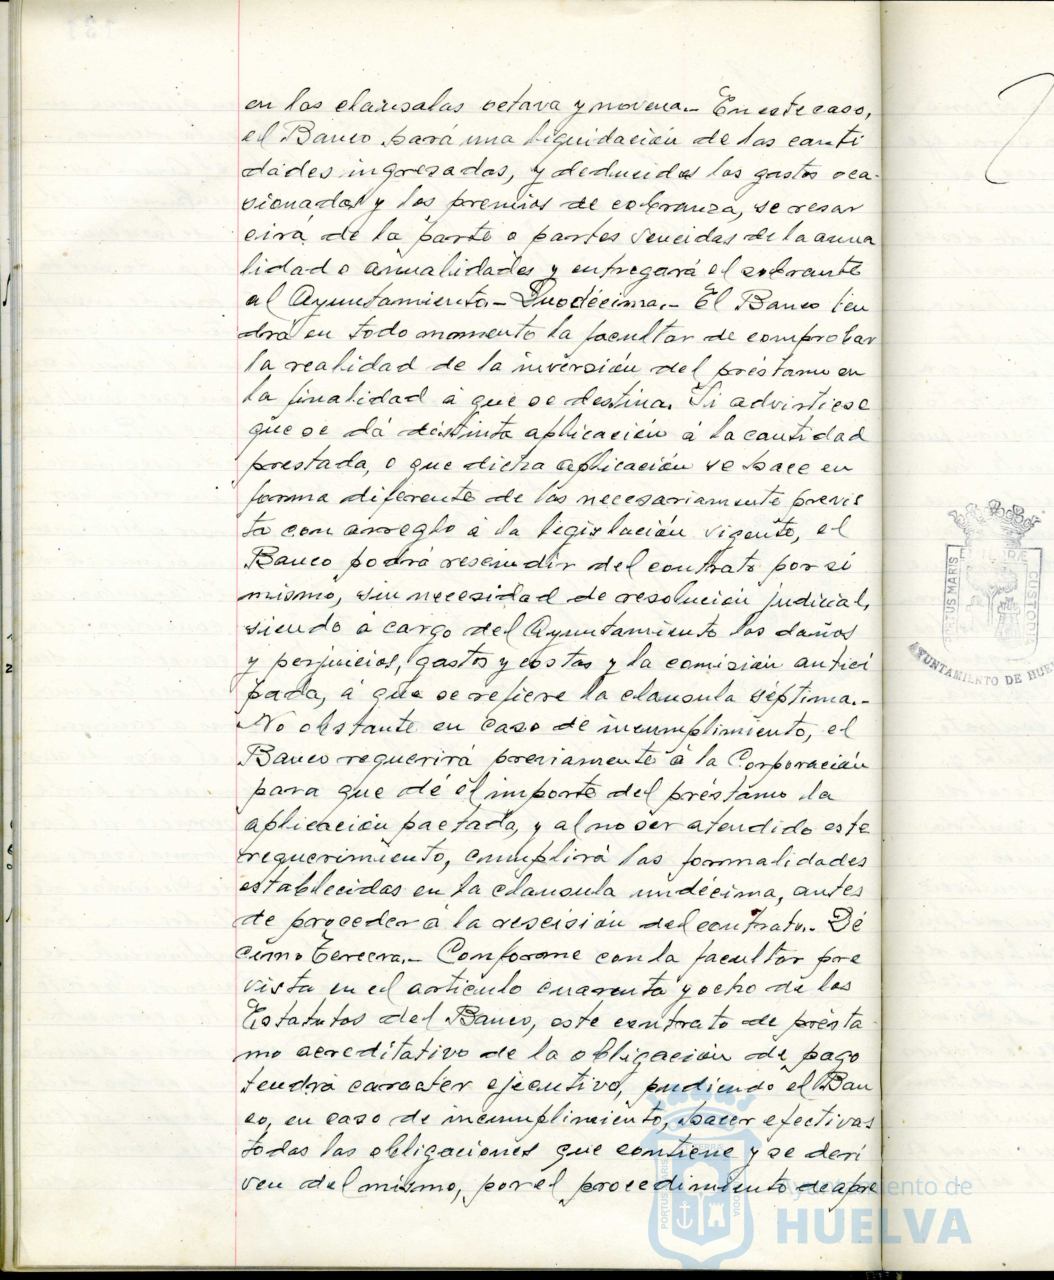 en las clausulas octava y novena.- En este caso,
el Banco hará una liquidación de las canti
dades ingresadas, y deducidos los gastos oca-
sionados y los premios de cobranza, se resar
cirá de la parte o partes vencidas de la anua
lidad o anualidades y entregará el sobrante
al Ayuntamiento.- Duodécima.- El Banco ten
drá en todo momento la facultar de comprobar
la realidad de la inversión del préstamo en
la finalidad á que se destina. Si advirtiese
que se dá distinta aplicación á la cantidad
prestada, o que dicha aplicación se hace en
forma diferente de las necesariamente previs
ta con arreglo á la legislación vigente, el
Banco podrá rescindir del contrato por si
mismo, sin necesidad de resolución judicial,
siendo a cargo del Ayuntamiento los daños
y perjuicios, gastos y costas y la comisión antici
pada, á que se refiere la clausula séptima.-
No obstante en caso de incumplimiento, el
Banco requerirá previamente á la Corporación
para que dé el importe del préstamo la
aplicación pactada, y al no ser atendido este
requerimiento, cumplirá las formalidades
establecidas en la clausula undécima, antes
de proceder á la rescisión del contrato.- Dé
cimo Tercera.- Conforme con la facultar pre
vista en el articulo cuarenta y ocho de los
Estatutos del Banco, este contrato de présta-
mo acreditativo de la obligación de pago
tendrá caracter ejecutivo, pudiendo el Ban
co, en caso de incumplimiento, hacer efectivas
todas las obligaciones que contiene y se deri
ven del mismo, por el procedimiento de apre
PORTUS MARIS
CUSTODIA
AYUNTAMIENTO DE HUE
Ayuntamiento de
HUELVA